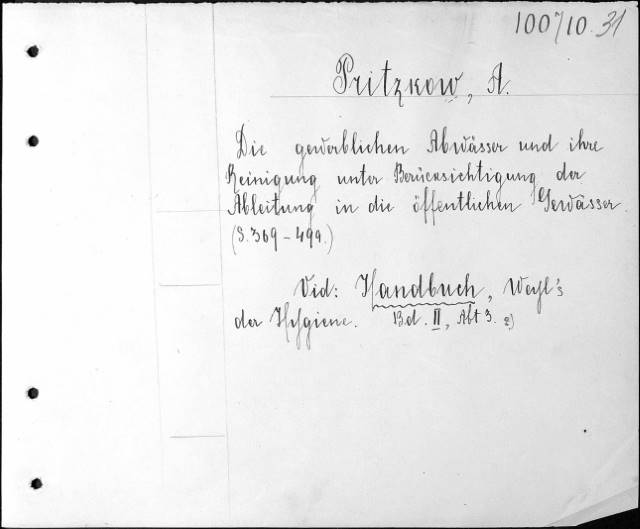 100710.31
Pritzkow, A.
Die gewerblichen Abwässer und ihre
Reinigung unter Berücksichtigung der
Ableitung in die öffentlichen Gewässer.
(S. 369-499.)
Vid: Handbuch, Weyl's
der Hygiene. Bd. II, Abt 3. 2)